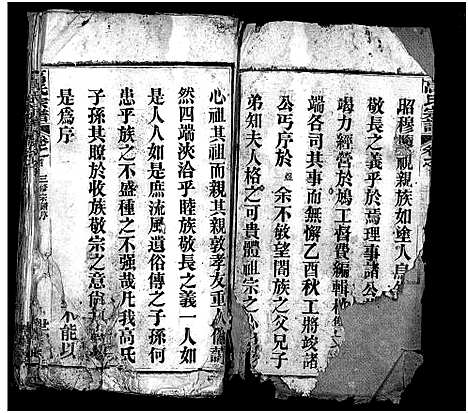 高氏宗譜
昭穆 視親族如塗人烏
敬長之義乎於焉理事諸公
竭力經營於鳩工督費編輯校
端各司其事而無懈乙酉秋工將竣諸
公丐序於 余不敏望閤族之父兄子
弟知夫人格之可貴體祖宗之
心祖其祖而親其親敦孝友
然四端浹洽乎睦族敬長之義一人如
是人人如是庶流風遺俗傳之子孫何
患乎族之不盛種之不强哉凡我高氏
子孫其瞭於收族敬宗之意
是為序
高氏宗譜 卷之
不能以